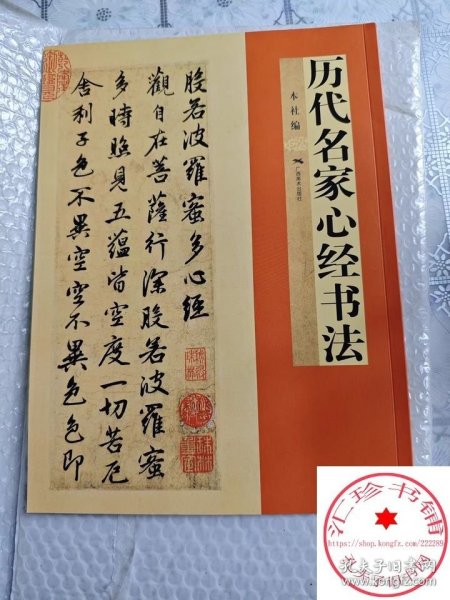 历代名家心经书法
本社编
广西美术出版社
般若波羅蜜多心經
觀自在菩薩行深般若波羅蜜
多時照見五蘊皆空度一切苦厄
舍利子色不異空空不異色色即
汇珍书铺
https://shop.kongfz.com/222289
孔夫子旧书网